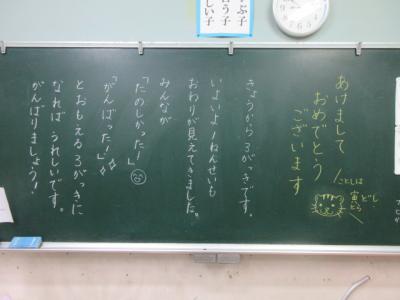 あけまして
おめでとう
ございます
ことしは
寅どし
とら
きょうから3がっきです。
いよいよ1ねんせいも
おわりが見えてきました。
みんなが
「たのしかった!」
「がんばった!」
とおもえる3がっきに
なれば うれしいです。
がんばりましょう!